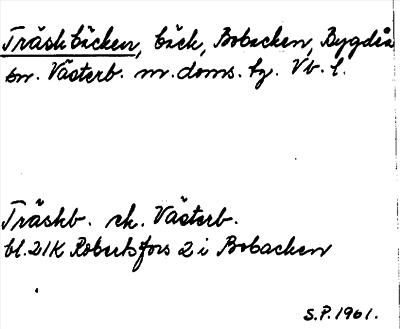 Träskbäcken, bäck, Bobacken, Bygdeå
sn. Västerb. m. doms. hg. Vb. l.
Träskb. ek. Västerb.
bl. 21K Robertsfors 2 i Bobacken
S.P. 1961.